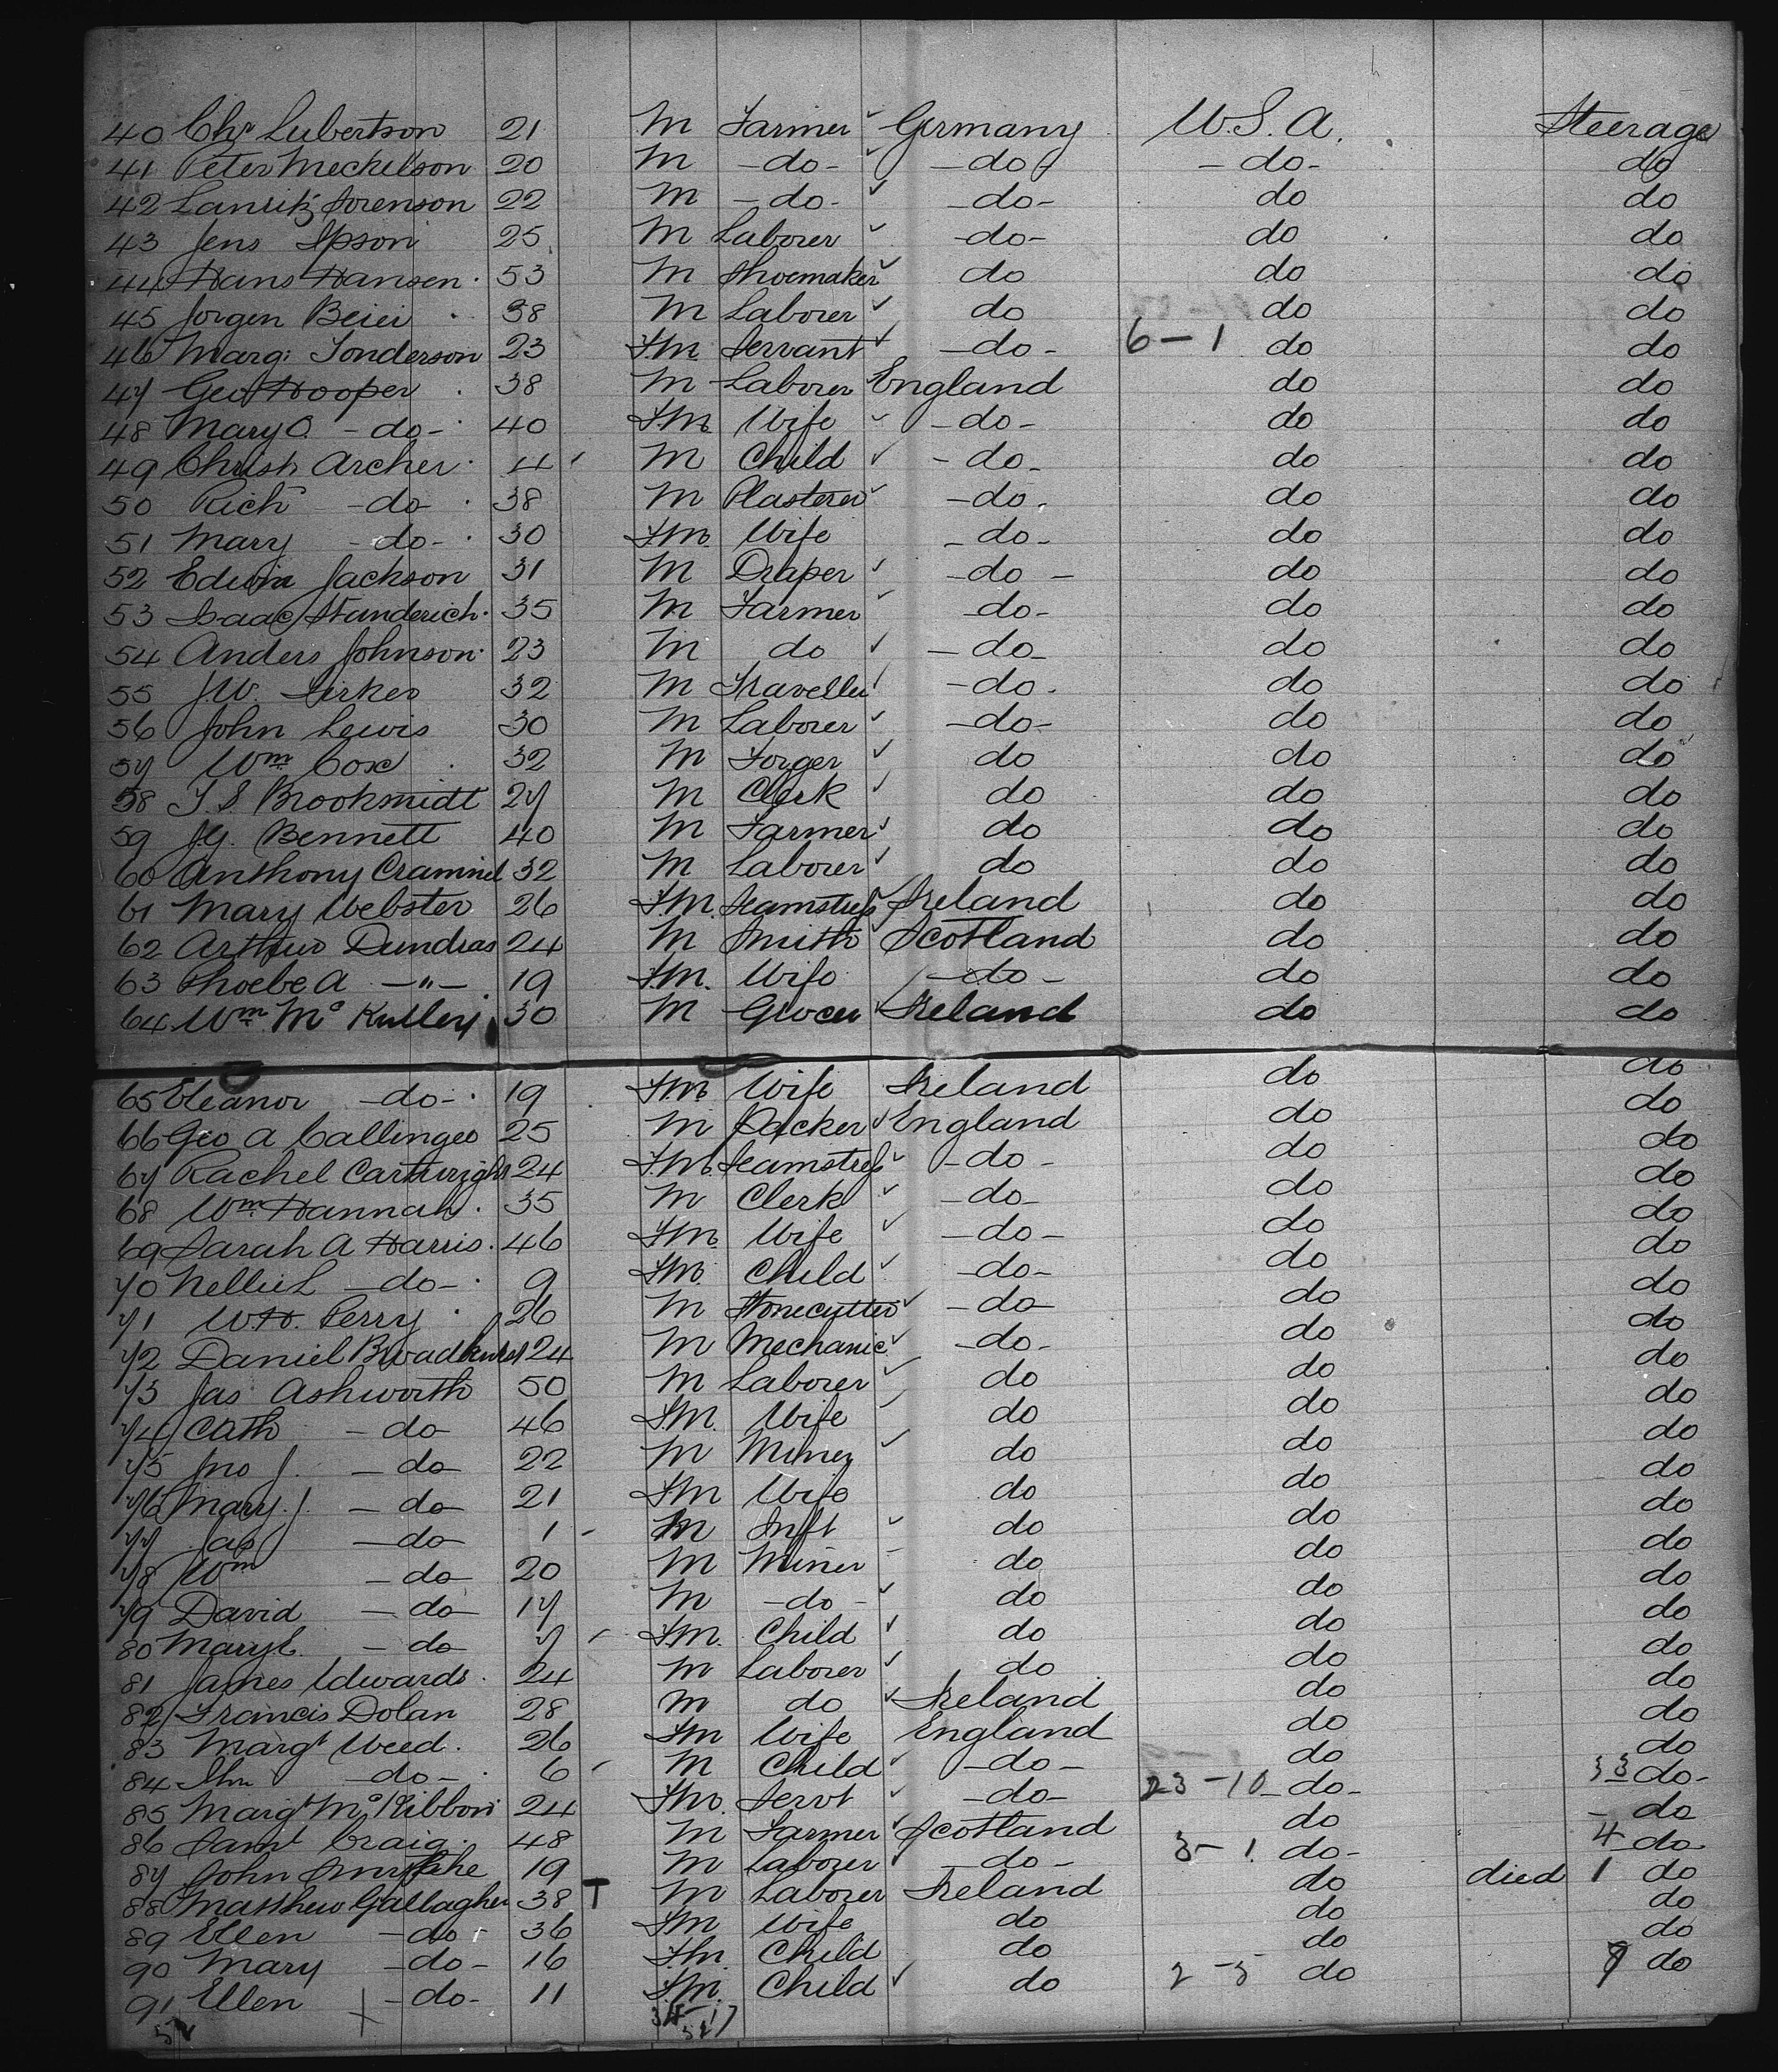 40 Chr Lubertson 21 M Farmer Germany U.S.A. Steerage
41 Peter Meckelson 20 M -do- -do- -do- do
42 Lauritz Sorenson 22 M -do- -do- do do
43 Jens Ipson 25 M Laborer -do- do do
44 Hans Hansen 53 M Shoemaker do do do
45 Jorgen Beiei 38 M Laborer do do do
46 Marg: Tonderson 23 F.M. Servant -do- 6-1 do do
47 Geo Hooper 38 M Laborer England do do
48 Mary C. -do- 40 F.M. Wife -do- do do
49 Christr Archer 4 M Child -do- do do
50 Richd -do- 38 M Plasterer -do- do do
51 Mary -do- 30 F.M. Wife -do- do do
52 Edwin Jackson 31 M Draper -do- do do
53 Isaac 35 M Farmer -do- do do
54 Anders Johnson 23 M do -do- do do
55 J.W. 32 M Traveller -do- do do
56 John Lewis 30 M Laborer -do- do do
57 Wm Cox 32 M Forger do do do
58 T S Brooksmidt 27 M Clerk do do do
59 J.G. Bennett 40 M Farmer do do do
60 Anthony 32 M Laborer do do do
61 Mary Webster 26 F.M. Seamstress Ireland do do
62 Arthur Dundras 24 M Smith Scotland do do
63 Phoebe A -"- 19 F.M. Wife -do- do do
64 Wm Mc Kulley 30 M Grocer Ireland do do
65 Eleanor -do- 19 F.M. Wife Ireland do do
66 Geo A 25 M Packer England do do
67 Rachel Cartwright 24 F.M. Seamstress -do- do do
68 Wm Hannah 35 M Clerk -do- do do
69 Sarah A Harris 46 F.M. Wife -do- do do
70 Nellie L -do- 9 F.M. Child -do- do do
71 W.H. Perry 26 M Stonecutter -do- do do
72 Daniel Broadhurst 24 M Mechanic -do- do do
73 Jas Ashworth 50 M Laborer do do do
74 Cath -do- 46 F.M. Wife do do do
75 Jno J. -do- 22 M Miner do do do
76 Mary J. -do- 21 F.M. Wife do do do
77 Jas -do- 1 M Inft do do do
78 Wm -do- 20 M Miner do do do
79 David -do- 17 M -do- do do do
80 Mary E. -do- 7 F.M. Child do do do
81 James Edwards 24 M Laborer do do do
82 Francis Dolan 28 M do Ireland do do
83 Margt Weed 26 F.M. Wife England do do
84 Jhn -do- 6 M Child -do- do do
85 Margt McKibbon 24 F.M. Servt -do- 23-10 -do- 33 do-
86 Saml Craig 48 M Farmer Scotland do -do
87 John 19 M Laborer -do- 3-1 do- 4 do
88 Matthew Gallagher 38 T M Laborer Ireland do died 1 do
89 Ellen -do- 36 F.M. Wife do do do
90 Mary -do- 16 F.M. Child do do do
91 Ellen -do- 11 F.M. Child do 2-5 do 9 do
52 34-17